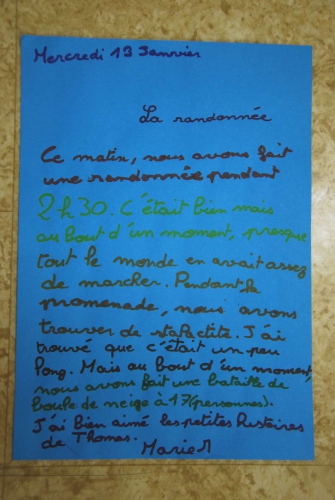 Mercredi 13 Janvier
La randonnée
Ce matin, nous avons fait
une randonnée pendant
2h30. C'était bien mais
au bout d'un moment, presque
tout le monde en avait assez
de marcher. Pendant la
promenade, nous avons
trouver de
trouvé que c'était un peu
long. Mais au bout d'un moment,
nous avons fait une bataille de
boule de neige à 17(personnes).
J'ai bien aimé les petites histoires
de Thomas.